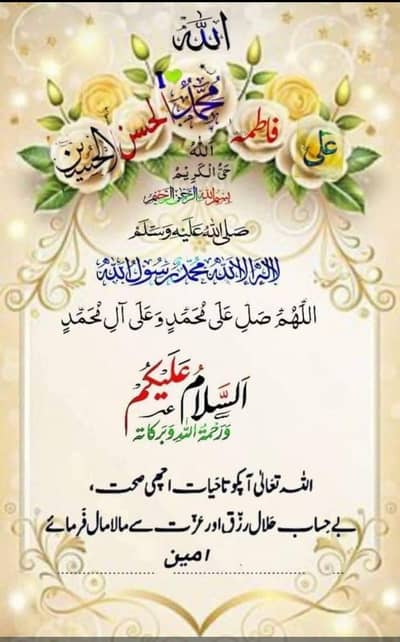 اللہ
I
محمد
علی فاطمہ الحسن الحسین
اللہ
حَیُّ الْکَرِیْمُ
بسم اللہ الرحمن الرحیم
صَلَّی اللہُ عَلَیْہِ وَسَلَّمَ
لَا اِلٰہَ اِلَّا اللہُ مُحَمَّدٌ رَسُوْلُ اللہِ
اللَّهُمَّ صَلِّ عَلَى مُحَمَّدٍ وَعَلَى آلِ مُحَمَّدٍ
اَلسَّلَامُ عَلَيْكُم
وَرَحْمَةُ اللّٰهِ وَبَرَكَاتُهُ
اللہ تعالیٰ آپکو تاحیات اچھی صحت،
بے حساب حلال رزق اور عزت سے مالا مال فرمائے
امین